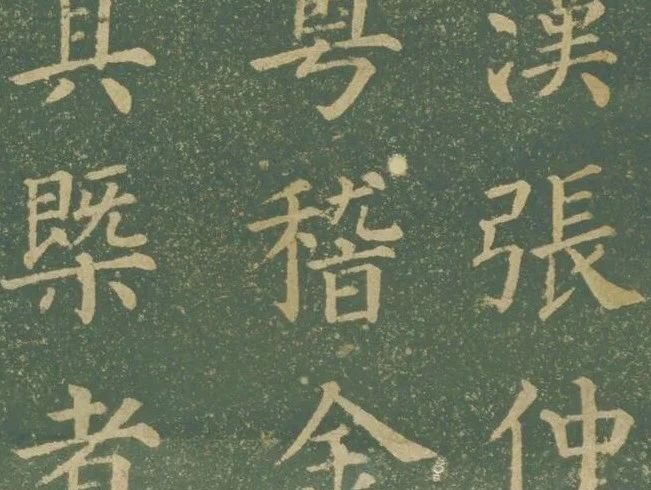 漢張仲
粤稽金
其槩者